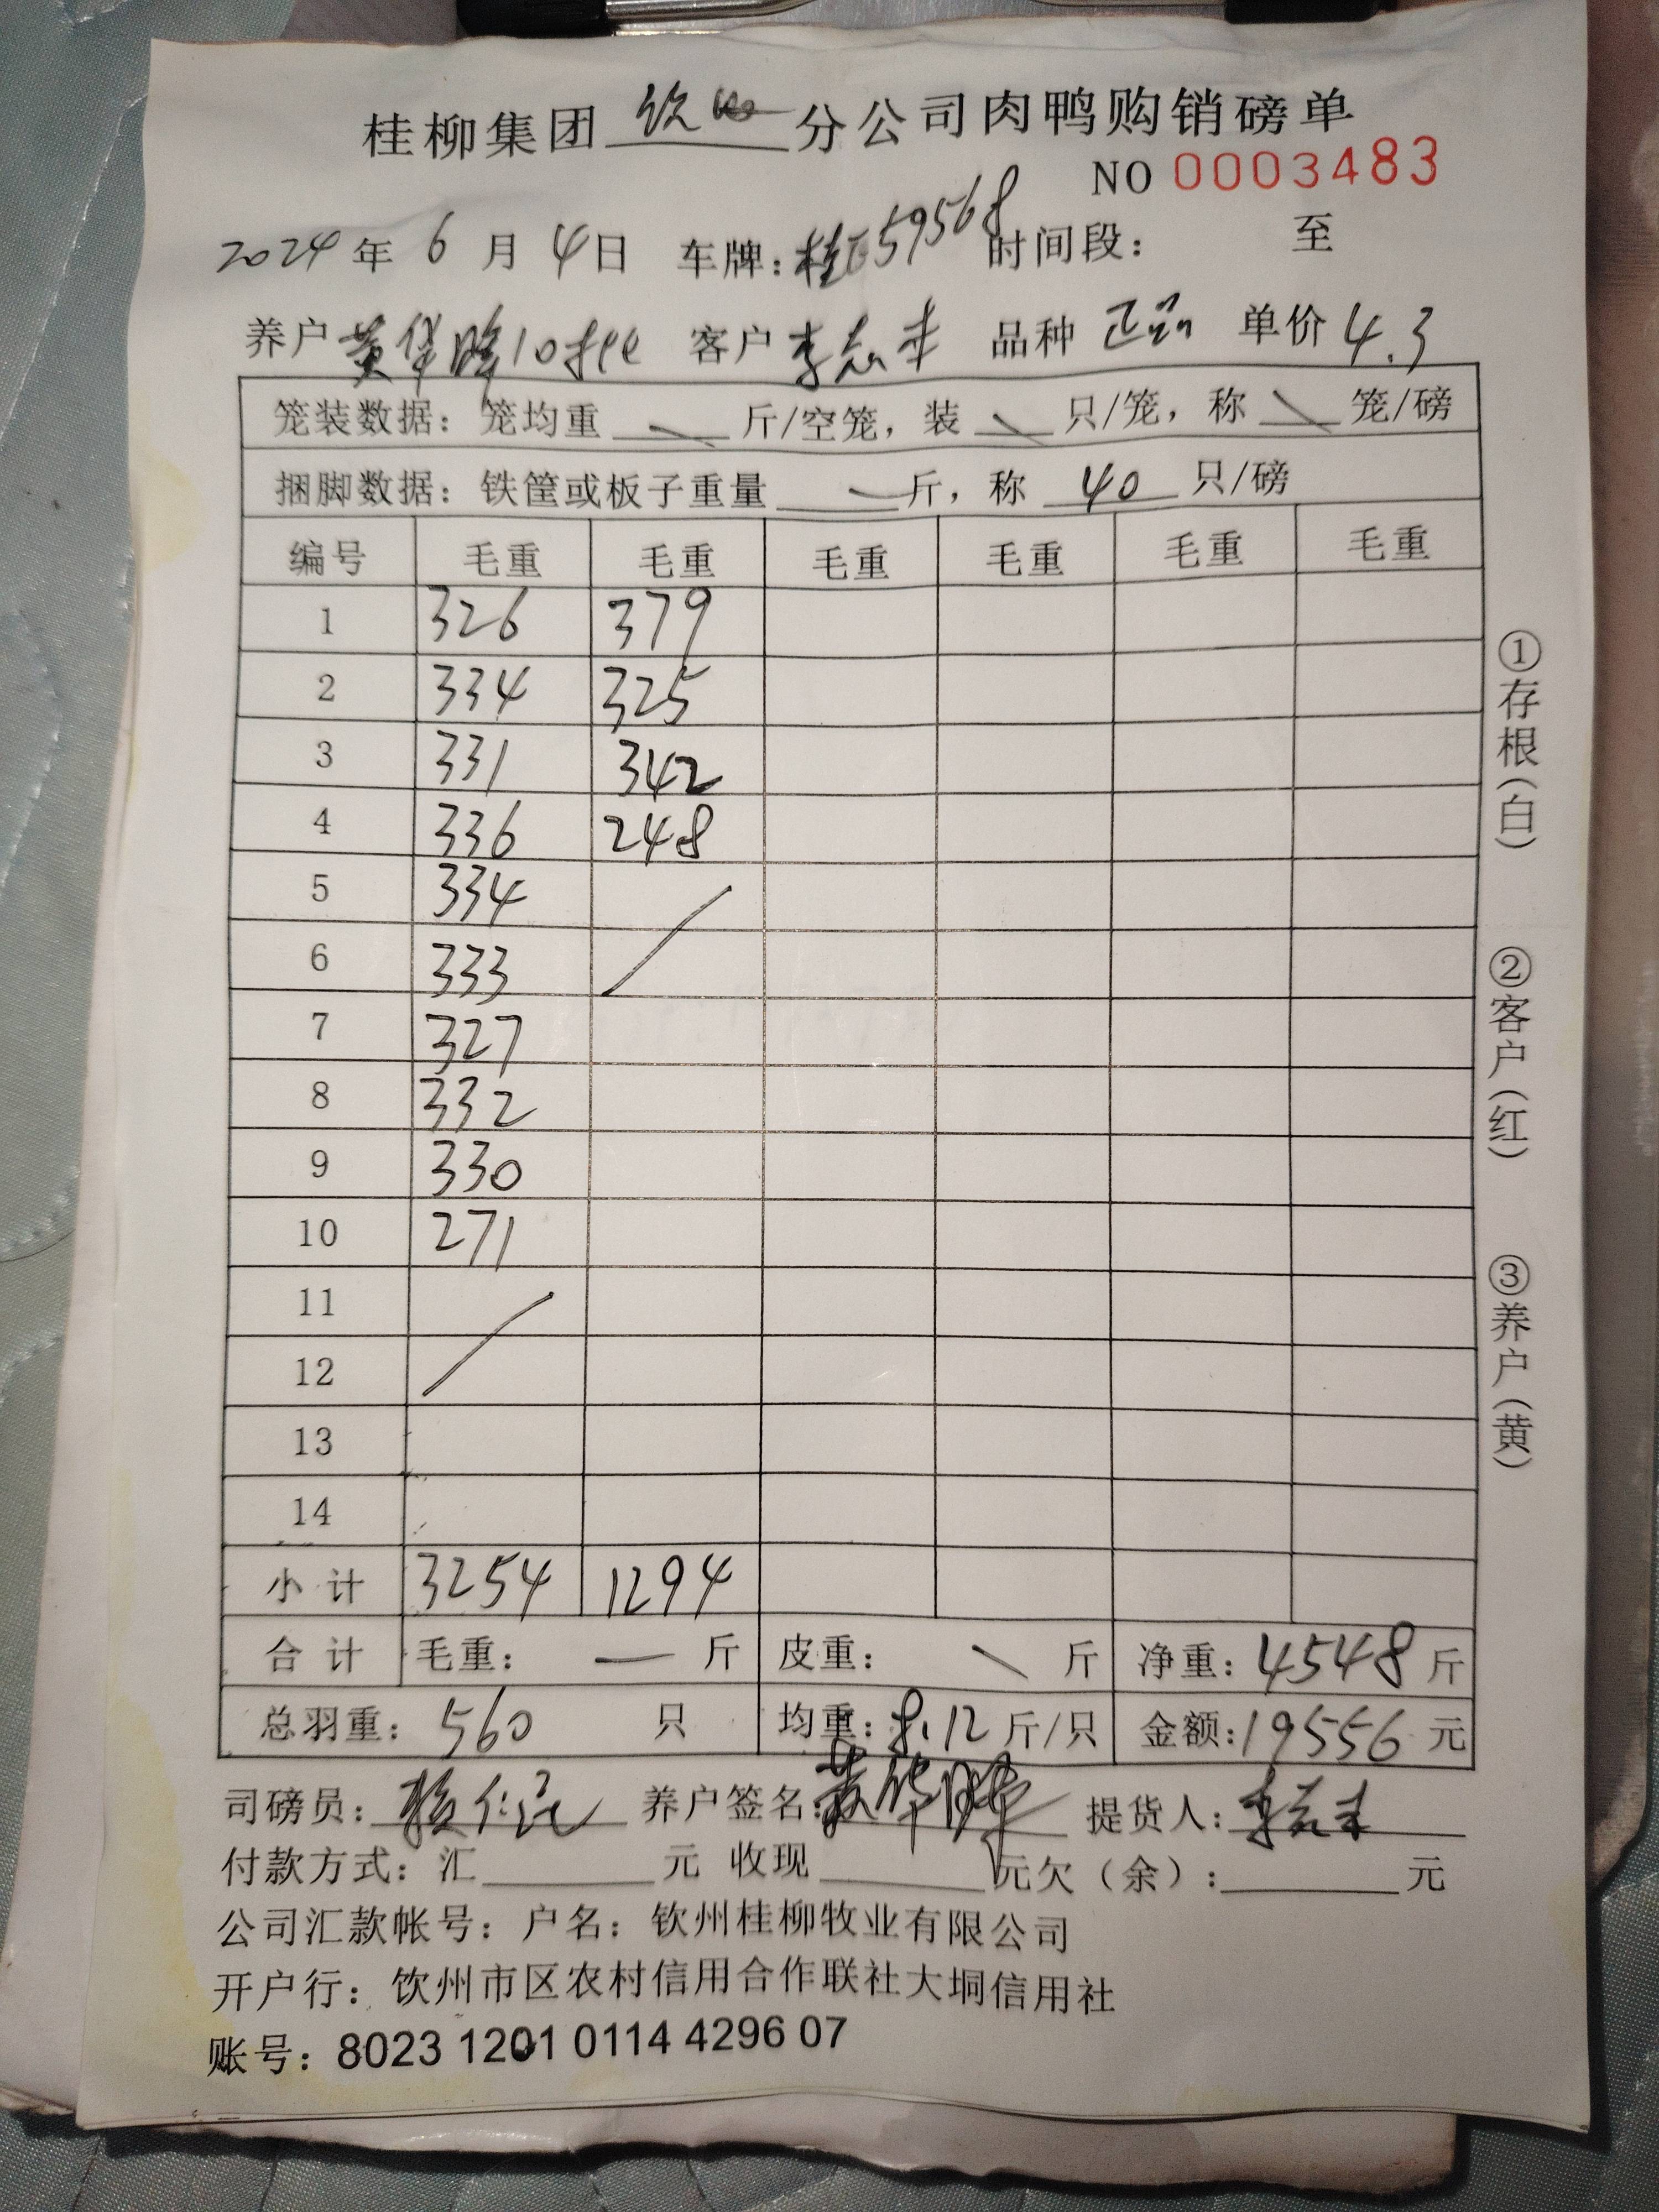 桂柳集团 钦州 分公司肉鸭购销磅单
NO 0003483
2024 年 6 月 4 日 车牌：桂E59568 时间段： 至
养户 黄华 10批 客户 李志丰 品种 正品 单价 4.3
笼装数据：笼均重 斤/空笼，装 只/笼，称 笼/磅
捆脚数据：铁筐或板子重量 斤，称 40 只/磅
编号 毛重 毛重 毛重 毛重 毛重 毛重
1 326 379
2 334 325
3 331 342
4 336 248
5 334
6 333
7 327
8 332
9 330
10 271
11
12
13
14
小计 3254 1294
合计 毛重： — 斤 皮重： 斤 净重：4548 斤
总羽重： 560 只 均重：8.12 斤/只 金额：19556 元
司磅员： 养户签名：黄华 提货人：李志丰
付款方式：汇 元 收现 元欠（余）： 元
公司汇款帐号：户名：钦州桂柳牧业有限公司
开户行：钦州市区农村信用合作联社大垌信用社
账号：8023 1201 0114 4296 07
①存根（白）
②客户（红）
③养户（黄）